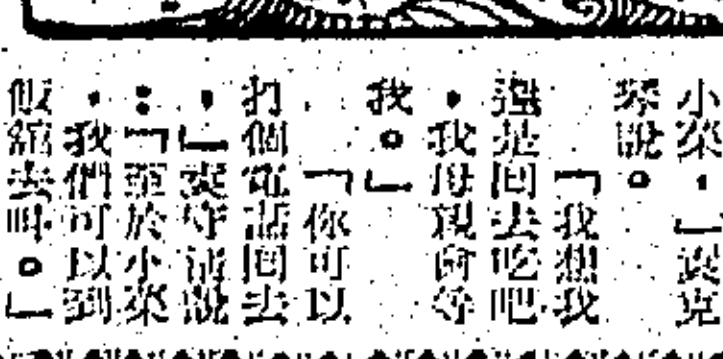 小菜，」裘克
琴說。
「我想我
還是回去吃吧
，我母親會等
我。」
「你可以
打個電話回去
，」裘守清說
：「至於小菜
，我們可以到
飯館去叫。」